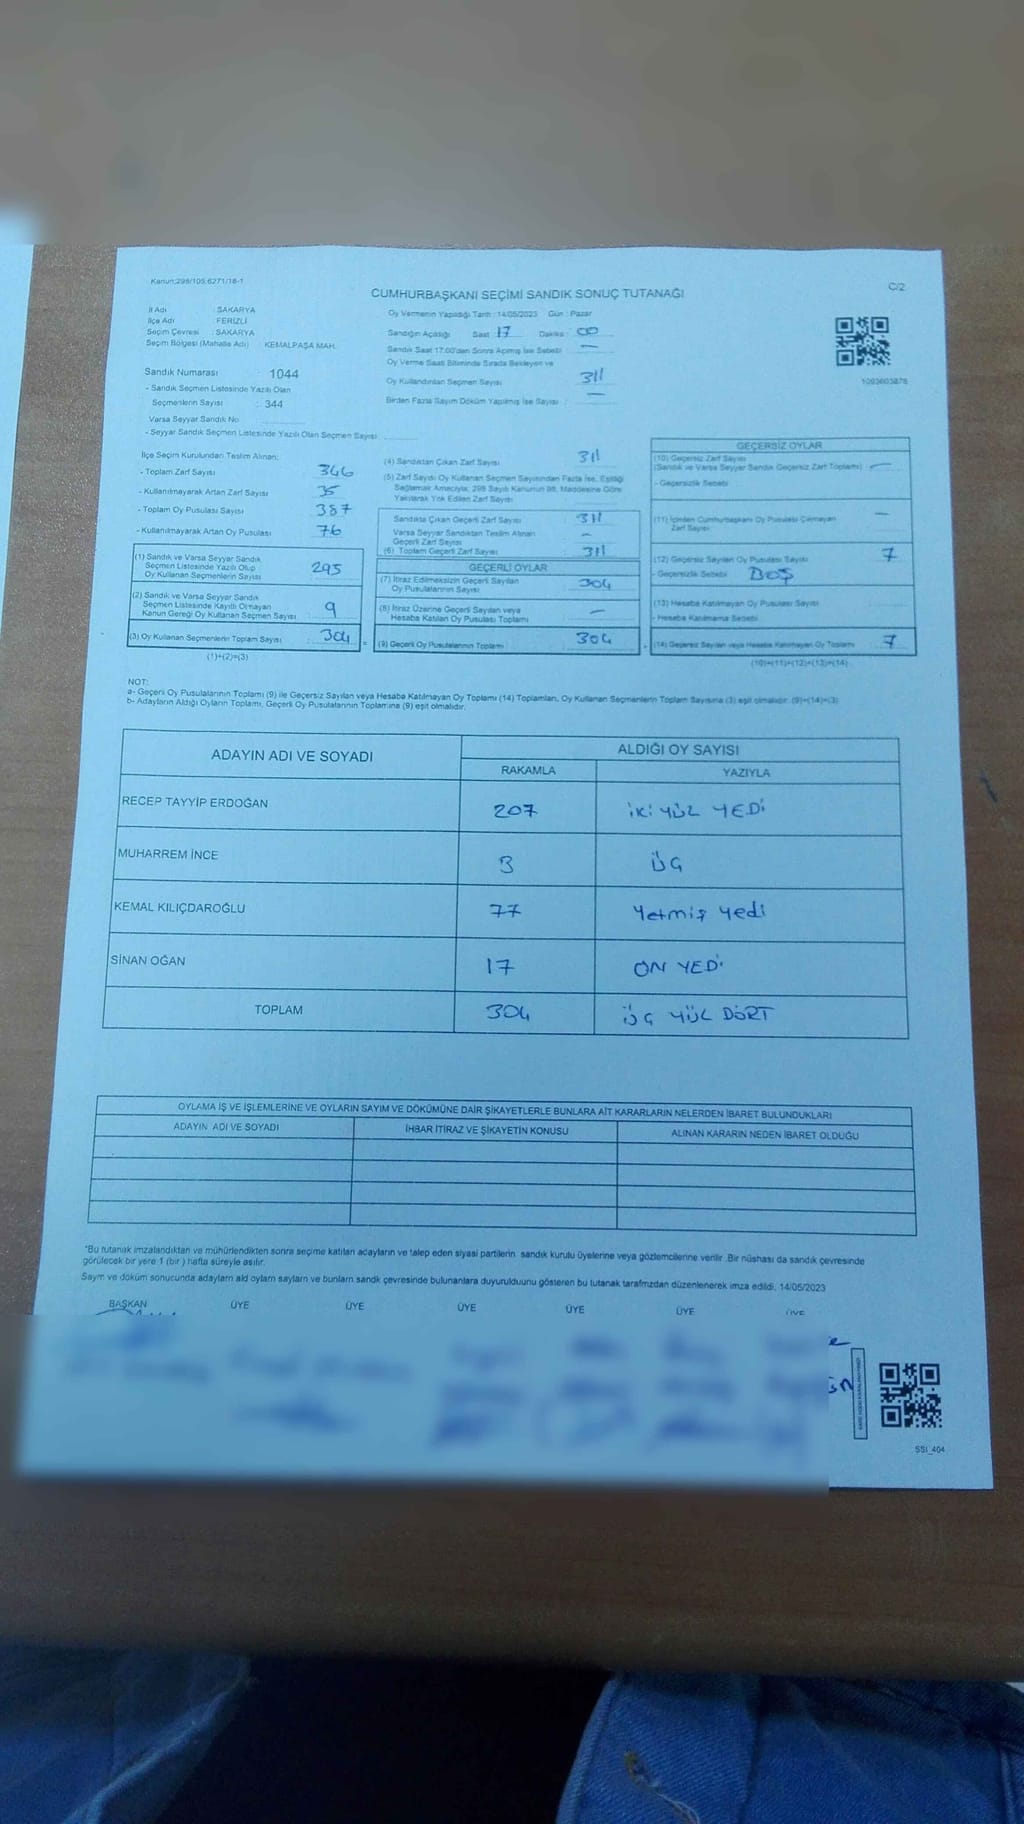 Kanun:298/105,6271/18-1
C/2
CUMHURBAŞKANI SEÇİMİ SANDIK SONUÇ TUTANAĞI
İl Adı : SAKARYA
İlçe Adı : FERİZLİ
Seçim Çevresi : SAKARYA
Seçim Bölgesi (Mahalle Adı) KEMALPAŞA MAH.
Sandık Numarası : 1044
- Sandık Seçmen Listesinde Yazılı Olan
Seçmenlerin Sayısı : 344
Varsa Seyyar Sandık No
- Seyyar Sandık Seçmen Listesinde Yazılı Olan Seçmen Sayısı
Oy Vermenin Yapıldığı Tarih : 14/05/2023 Gün : Pazar
Sandığın Açıldığı Saat 17 Dakika : 00
Sandık Saat 17:00'dan Sonra Açılmış İse Sebebi —
Oy Verme Saati Bitiminde Sırada Bekleyen ve
Oy Kullandırılan Seçmen Sayısı 311
Birden Fazla Sayım Döküm Yapılmış İse Sayısı : —
1093603878
İlçe Seçim Kurulundan Teslim Alınan;
- Toplam Zarf Sayısı 346
- Kullanılmayarak Artan Zarf Sayısı 35
- Toplam Oy Pusulası Sayısı 387
- Kullanılmayarak Artan Oy Pusulası 76
(1) Sandık ve Varsa Seyyar Sandık
Seçmen Listesinde Yazılı Olup
Oy Kullanan Seçmenlerin Sayısı 295
(2) Sandık ve Varsa Seyyar Sandık
Seçmen Listesinde Kayıtlı Olmayan
Kanun Gereği Oy Kullanan Seçmen Sayısı 9
(3) Oy Kullanan Seçmenlerin Toplam Sayısı 304 =
(1)+(2)=(3)
(4) Sandıktan Çıkan Zarf Sayısı 311
(5) Zarf Sayısı Oy Kullanan Seçmen Sayısından Fazla İse, Eşitliği
Sağlamak Amacıyla, 298 Sayılı Kanunun 98. Maddesine Göre
Yakılarak Yok Edilen Zarf Sayısı
Sandıkta Çıkan Geçerli Zarf Sayısı 311
Varsa Seyyar Sandıktan Teslim Alınan
Geçerli Zarf Sayısı —
(6) Toplam Geçerli Zarf Sayısı 311
GEÇERLİ OYLAR
(7) İtiraz Edilmeksizin Geçerli Sayılan
Oy Pusulalarının Sayısı 304
(8) İtiraz Üzerine Geçerli Sayılan veya
Hesaba Katılan Oy Pusulası Toplamı —
(9) Geçerli Oy Pusulalarının Toplamı 304 +
GEÇERSİZ OYLAR
(10) Geçersiz Zarf Sayısı
(Sandık ve Varsa Seyyar Sandık Geçersiz Zarf Toplamı) —
- Geçersizlik Sebebi
(11) İçinden Cumhurbaşkanı Oy Pusulası Çıkmayan
Zarf Sayısı —
(12) Geçersiz Sayılan Oy Pusulası Sayısı 7
- Geçersizlik Sebebi BOŞ
(13) Hesaba Katılmayan Oy Pusulası Sayısı
- Hesaba Katılmama Sebebi
(14) Geçersiz Sayılan veya Hesaba Katılmayan Oy Toplamı 7
(10)+(11)+(12)+(13)=(14)
NOT:
a- Geçerli Oy Pusulalarının Toplamı (9) ile Geçersiz Sayılan veya Hesaba Katılmayan Oy Toplamı (14) Toplamları, Oy Kullanan Seçmenlerin Toplam Sayısına (3) eşit olmalıdır. (9)+(14)=(3)
b- Adayların Aldığı Oyların Toplamı, Geçerli Oy Pusulalarının Toplamına (9) eşit olmalıdır.
ADAYIN ADI VE SOYADI ALDIĞI OY SAYISI
RAKAMLA YAZIYLA
RECEP TAYYİP ERDOĞAN 207 İKİ YÜZ YEDİ
MUHARREM İNCE 3 ÜÇ
KEMAL KILIÇDAROĞLU 77 Yetmiş Yedi
SİNAN OĞAN 17 ON YEDİ
TOPLAM 304 ÜÇ YÜZ DÖRT
OYLAMA İŞ VE İŞLEMLERİNE VE OYLARIN SAYIM VE DÖKÜMÜNE DAİR ŞİKAYETLERLE BUNLARA AİT KARARLARIN NELERDEN İBARET BULUNDUKLARI
ADAYIN ADI VE SOYADI İHBAR İTİRAZ VE ŞİKAYETİN KONUSU ALINAN KARARIN NEDEN İBARET OLDUĞU
*Bu tutanak imzalandıktan ve mühürlendikten sonra seçime katılan adayların ve talep eden siyasi partilerin sandık kurulu üyelerine veya gözlemcilerine verilir. Bir nüshası da sandık çevresinde
görülecek bir yere 1 (bir ) hafta süreyle asılır.
Sayım ve döküm sonucunda adayların ald oyların sayları ve bunların sandık çevresinde bulunanlara duyurulduunu gösteren bu tutanak tarafmzdan düzenlenerek imza edildi. 14/05/2023
BAŞKAN ÜYE ÜYE ÜYE ÜYE ÜYE ÜYE
SSI_404